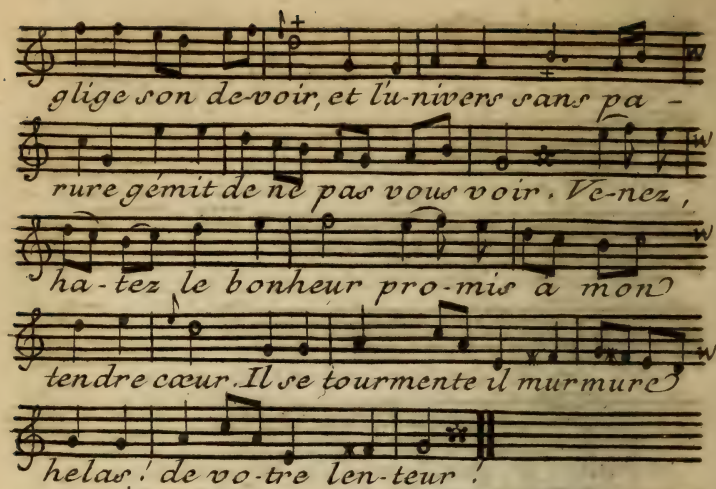 glige son de-voir, et l'u-nivers sans pa -
rure gémit de ne pas vous voir. Ve-nez,
ha-tez le bonheur pro-mis a mon
tendre cœur. Il se tourmente il murmure
helas! de vo-tre len-teur!